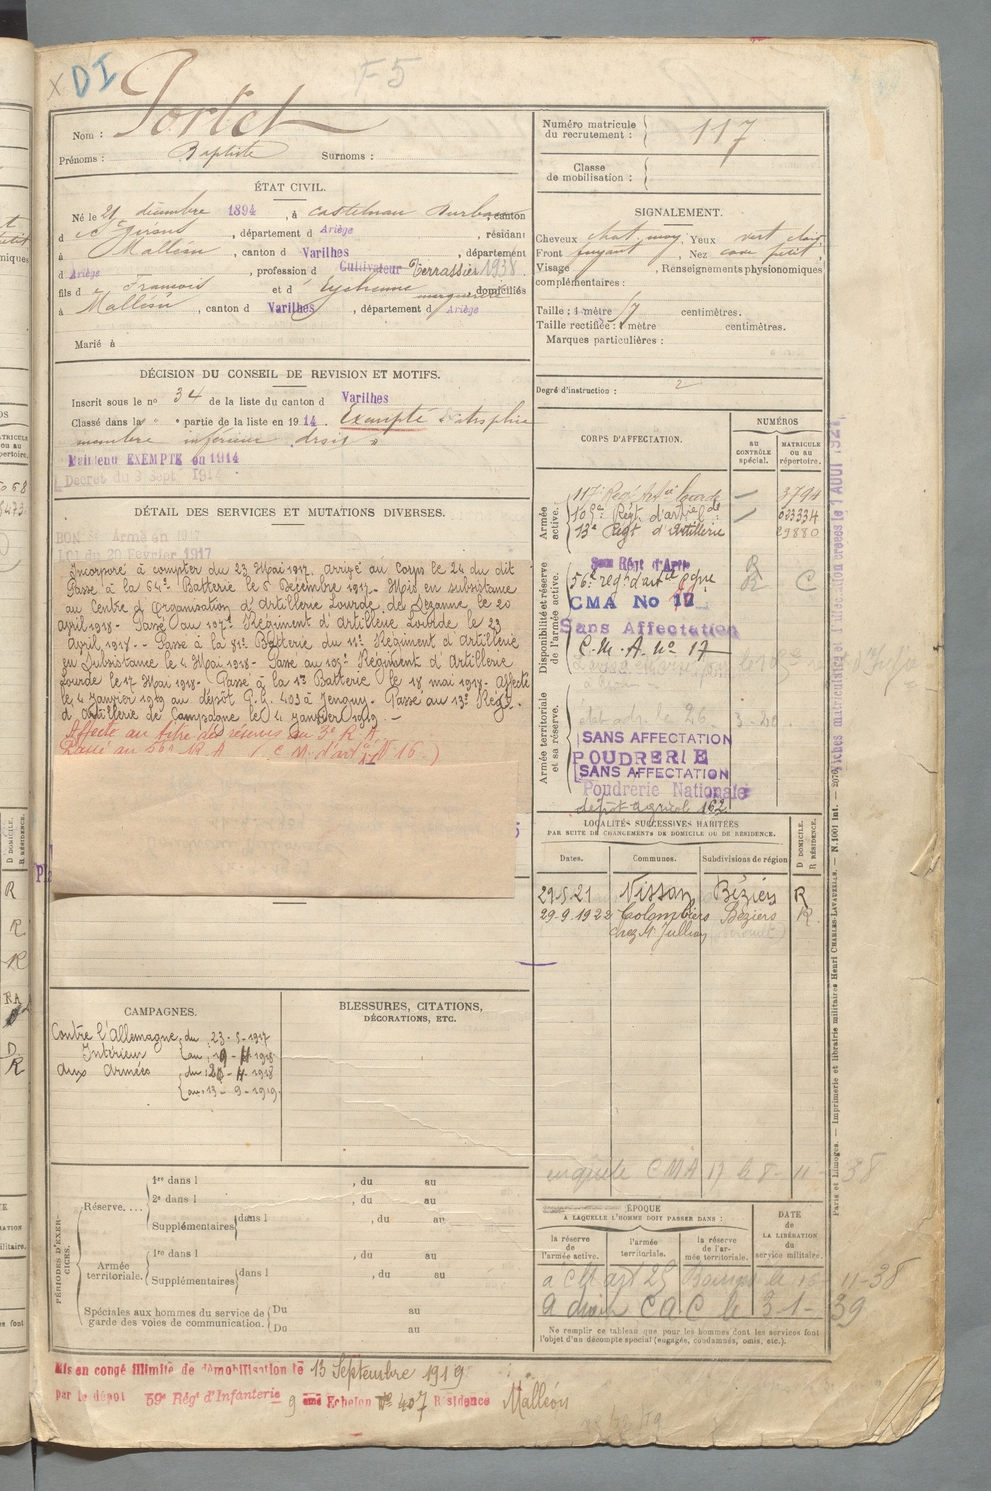 X DI
F 5
Nom : Portet
Prénoms : Baptiste Surnoms :
ÉTAT CIVIL.
Né le 21 décembre 1894, à Castelnau Durban, canton
d St Girons, département d Ariège, résidant
à Malléon, canton d Varilhes, département
d Ariège, profession d Cultivateur Terrassier 1938
fils d François et d Eychenne marguerite domiciliés
à Malléon, canton d Varilhes, département d Ariège
Marié à
DÉCISION DU CONSEIL DE REVISION ET MOTIFS.
Inscrit sous le no 34 de la liste du canton d Varilhes
Classé dans la " " partie de la liste en 1914. Exempté Atrophie
membre inférieur droit
Maintenu EXEMPTÉ en 1914
Décret du 9 Sept. 1914
DÉTAIL DES SERVICES ET MUTATIONS DIVERSES.
BON Sce Armé en 1917
LOI du 20 Février 1917
Incorporé à compter du 23 Mai 1917. Arrivé au Corps le 24 du dit
Passé à la 64e Batterie le 6 Décembre 1917. Mis en subsistance
au Centre d'Organisation d'Artillerie Lourde de Sézanne le 20
Avril 1918 - Passé au 107e Régiment d'Artillerie Lourde le 23
Avril 1918 - Passé à la 81e Batterie du 11e Régiment d'Artillerie
en Subsistance le 4 Mai 1918 - Passé au 105e Régiment d'Artillerie
Lourde le 17 Mai 1918 - Passé à la 1re Batterie le 18 mai 1918 - Affecté
le 4 Janvier 1919 au dépôt P.G. 403 à Passé au 13e Régt.
d'Artillerie de Campagne le 4 janvier 1919. -
Affecté au titre des réserves au 3e R.A.
Passé au 56e R.A. (C.M. d'artie No 16.)
CAMPAGNES.
Contre l'Allemagne du 23-5-1917
Intérieur au 19-4-1918
Aux Armées du 20-4-1918
au 13-9-1919
BLESSURES, CITATIONS,
DÉCORATIONS, ETC.
PÉRIODES D'EXERCICES.
Réserve....
1re dans l , du au
2e dans l , du au
Supplémentaires dans l , du au
Armée territoriale.
1re dans l , du au
Supplémentaires dans l , du au
Spéciales aux hommes du service de
garde des voies de communication.
Du au
Du au
Mis en congé illimité de démobilisation le 13 Septembre 1919
par le dépôt 59e Régt d'Infanterie 9 ème Echelon No 407 Résidence Malléon
Numéro matricule
du recrutement : 117
Classe
de mobilisation :
SIGNALEMENT.
Cheveux chat. moy. Yeux vert clair
Front fuyant, Nez cave petit,
Visage , Renseignements physionomiques
complémentaires :
Taille : 1 mètre 57 centimètres.
Taille rectifiée : 1 mètre centimètres.
Marques particulières :
Degré d'instruction : 2
CORPS D'AFFECTATION.
NUMÉROS
AU CONTRÔLE spécial.
MATRICULE OU AU répertoire.
Armée active.
117e Régt Artie lourde — 3794
105e Régt. d'artie lde — 023334
13e Régt d'Artillerie 29880
Disponibilité et réserve de l'armée active.
56e régt d'artie Cpne R C
CMA No 17
Sans Affectation
C.M.A. no 17
Armée territoriale et sa réserve.
SANS AFFECTATION
POUDRERIE
SANS AFFECTATION
Poudrerie Nationale
dépôt agricol 162
LOCALITÉS SUCCESSIVES HABITÉES
PAR SUITE DE CHANGEMENTS DE DOMICILE OU DE RÉSIDENCE.
Dates. Communes. Subdivisions de région
D DOMICILE.
R RÉSIDENCE.
29-5-21 Nissan Béziers R
29-9-1922 Colombiers Béziers R.
chez Mr Jullian
enquête CMA 17 le 8-11-38
ÉPOQUE
A LAQUELLE L'HOMME DOIT PASSER DANS :
la réserve de l'armée active.
l'armée territoriale.
la réserve de l'armée territoriale.
DATE
de
LA LIBÉRATION
du
service militaire.
11-38
CAC le 3-1-39
Ne remplir ce tableau que pour les hommes dont les services font
l'objet d'un décompte spécial (engagés, condamnés, omis, etc.).
Paris et Limoges. — Imprimerie et librairie militaires Henri CHARLES-LAVAUZELLE. — N. 1001 Int.